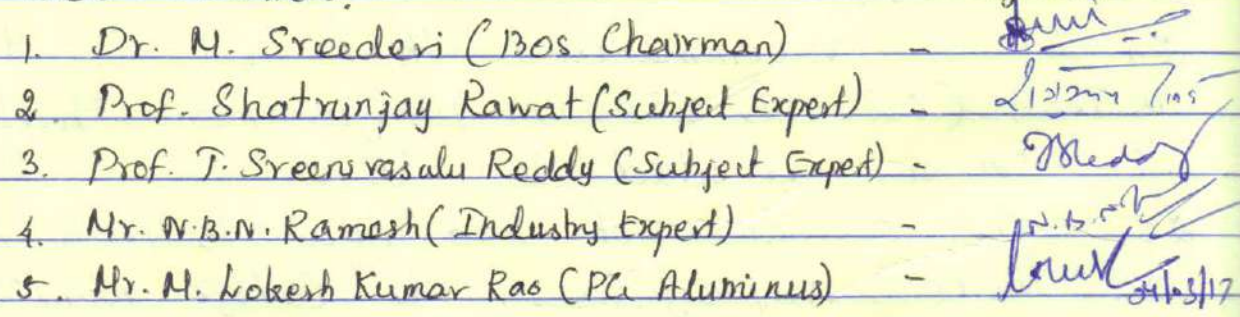 1. Dr. M. Sreedevi (BOS Chairman) -
2. Prof. Shatrunjay Rawat (Subject Expert) -
3. Prof. T. Sreenivasalu Reddy (Subject Expert) - Reddy
4. Mr. N.B.N. Ramesh (Industry Expert) - N.B.N
5. Mr. M. Lokesh Kumar Rao (PG Aluminus) - 04/03/17